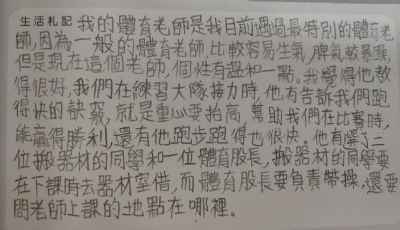 生活札記 我的體育老師是我目前遇過最特別的體育老
師,因為一般的體育老師比較容易生氣,脾氣較暴躁,
但是現在這個老師,個性有溫和一點。我覺得他教
得很好,我們在練習大隊接力時,他有告訴我們跑
得快的訣竅,就是重心要抬高,幫助我們在比賽時,
能贏得勝利,還有他跑步跑得也很快。他有選了二
位搬器材的同學和一位體育股長,搬器材的同學要
在下課時去器材室借,而體育股長要負責帶操,還要
問老師上課的地點在哪裡。